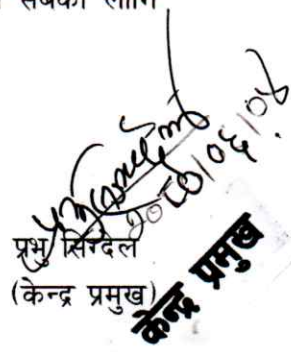 सबका लागि
२०८०/०६/०४
प्रभु सिग्देल
(केन्द्र प्रमुख)
केन्द्र प्रमुख